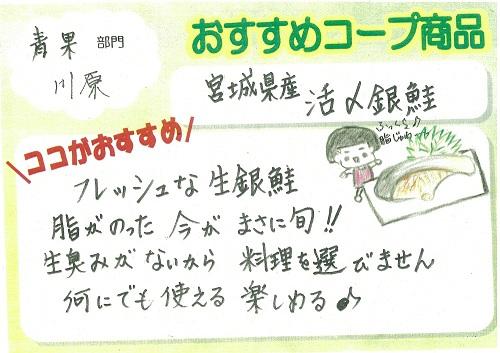 青果 部門
川原
おすすめコープ商品
宮城県産 活〆銀鮭
ココがおすすめ
ふっくら♪
脂じゅわ〜
フレッシュな生銀鮭
脂がのった 今が まさに旬!!
生臭みがないから 料理を選びません
何にでも使える 楽しめる♪